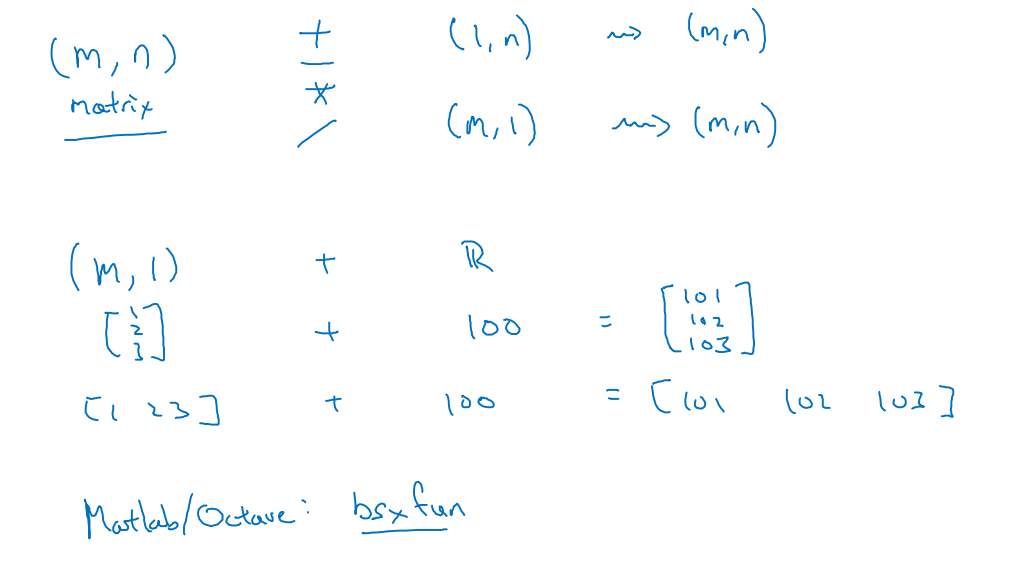 (m, n) + (1, n) ⇝ (m, n)
matrix − *
/ (m, 1) ⇝ (m, n)
(m, 1) + ℝ
[1 2 3] + 100 = [101 102 103]
[1 2 3] + 100 = [101 102 103]
Matlab/Octave: bsxfun